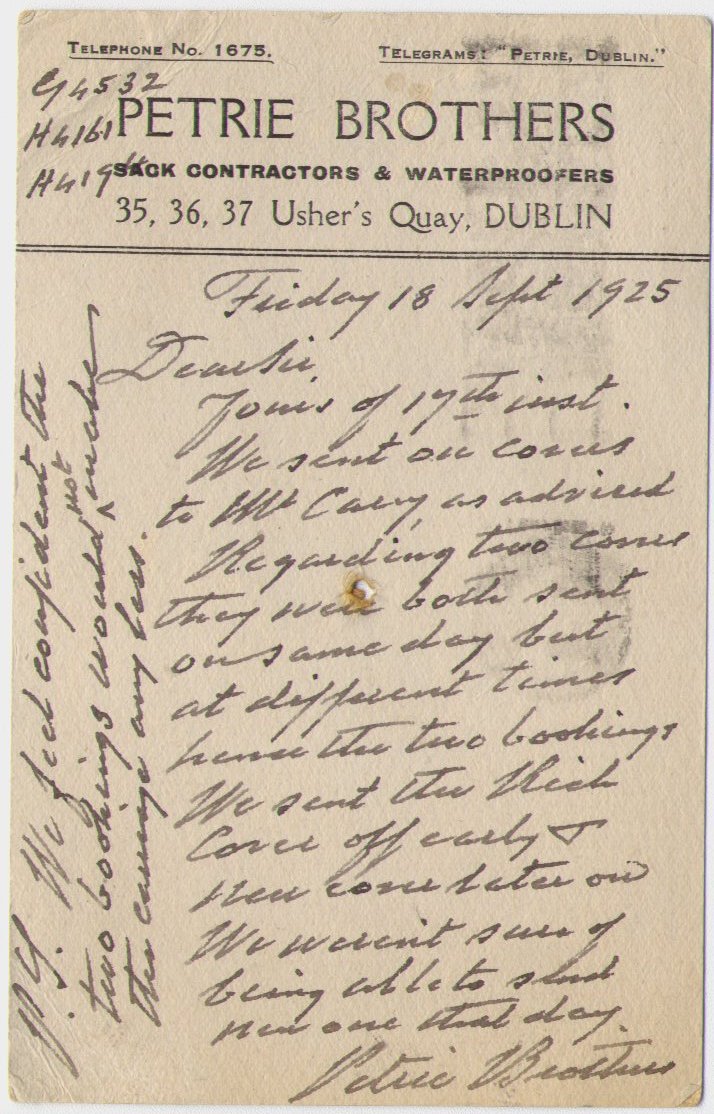 TELEPHONE NO. 1675.
TELEGRAMS: "PETRIE, DUBLIN."
G4532
H4161
H4194
PETRIE BROTHERS
SACK CONTRACTORS & WATERPROOFERS
35, 36, 37 Usher's Quay, DUBLIN
Friday 18 Sept 1925
Dear Sir
Yours of 17th inst.
We sent on cover
to Mr Carey, as advised
Regarding two covers
they were both sent
on same day but
at different times
hence the two bookings
We sent the
Cover off early &
new cover later on
We weren't sure of
being able to send
new one that day.
Petrie Brothers
P.S. We feel confident the
two bookings would not make
the carriage any less.